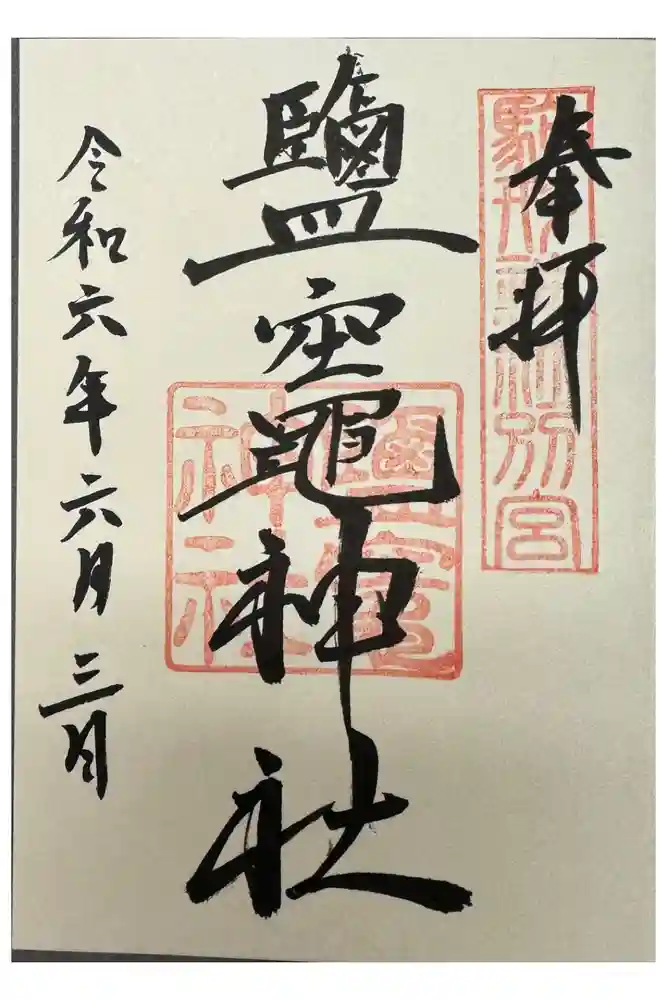 奉拝
駒形神社別宮
鹽竈神社
鹽竈
神社
令和六年六月三日